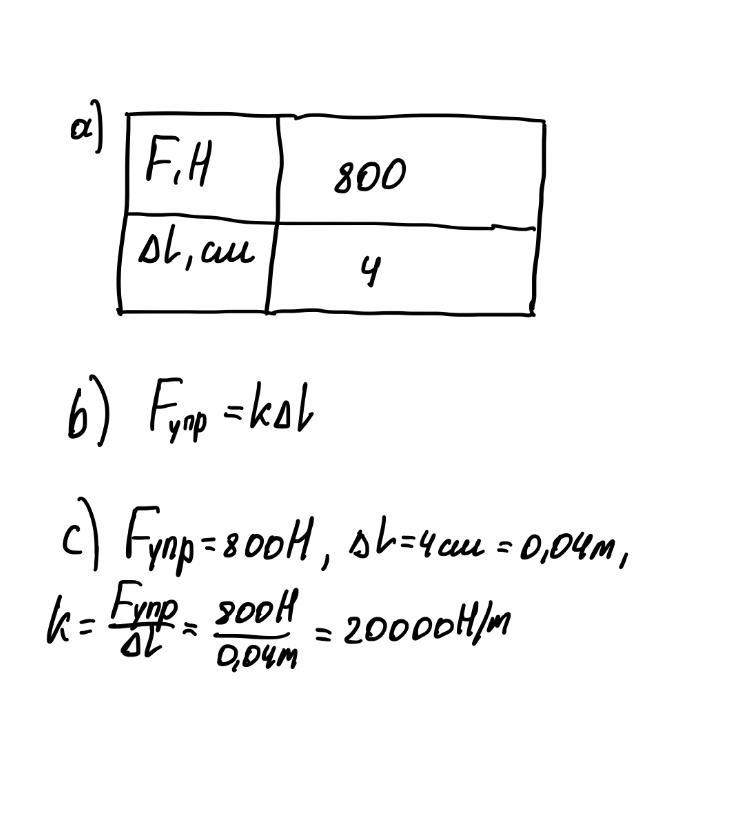 a)
F,Н 800
Δl,см 4
b) Fупр = kΔl
c) Fупр = 800Н, Δl = 4см = 0,04м,
k = Fупр/Δl = 800Н/0,04м = 20000Н/м